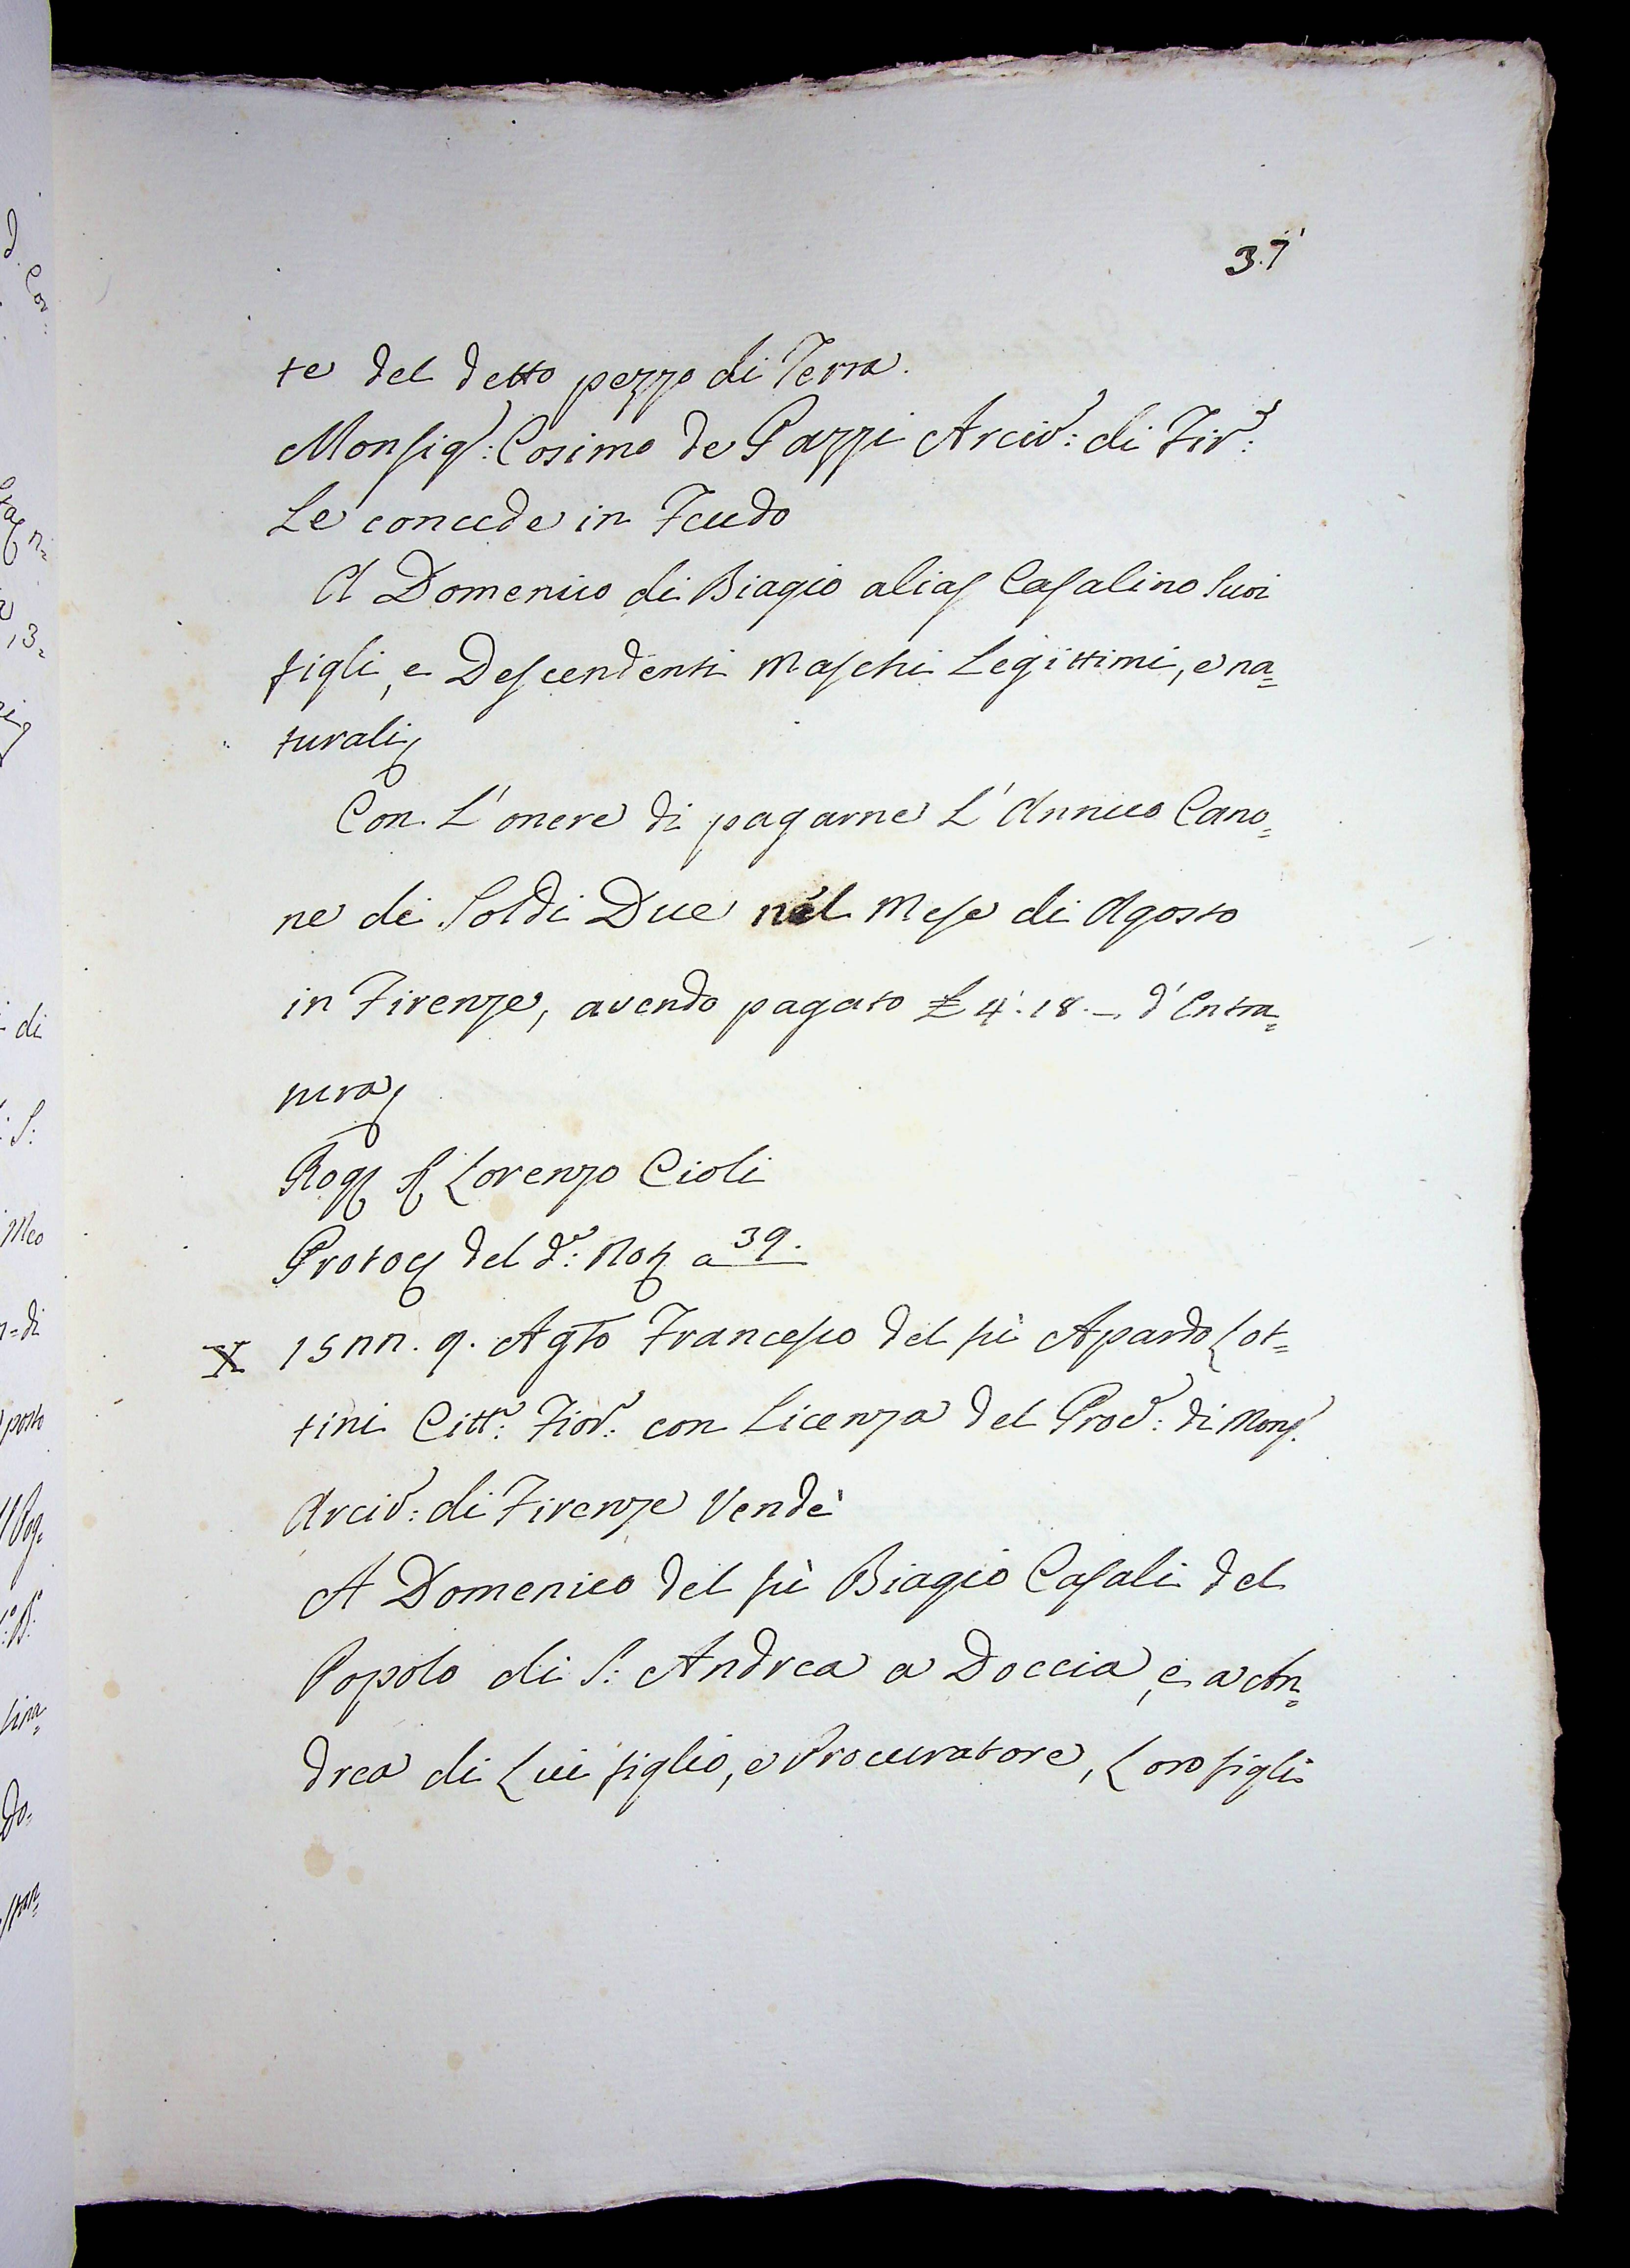 37
te del detto pezzo di Terra.
Monsig.r: Cosimo de Pazzi Arciv.o: di Fir.e:
Le concede in Feudo
A Domenico di Biagio alias Casalino Suoi
figli, e Descendenti Maschi Legittimi, e na=
turali
Con L'onere di pagarne L'Annuo Cano=
ne di Soldi Due nel Mese di Agosto
in Firenze, avendo pagato £ 4. 18. – d'Entra=
tura
Rog. S. Lorenzo Cioli
Protoc. del d.o: Not. a 39.
X 1577. 9. Agto Francesco del fù Apardo Lot=
tini Citt.o: Fior.o: con Licenza del Prov.e: di Mons.r
Arciv.o: di Firenze Vendè
A Domenico del fù Biagio Casali del
Popolo di S: Andrea a Doccia, e a An=
drea di Lui figlio, e Procuratore, Loro figli